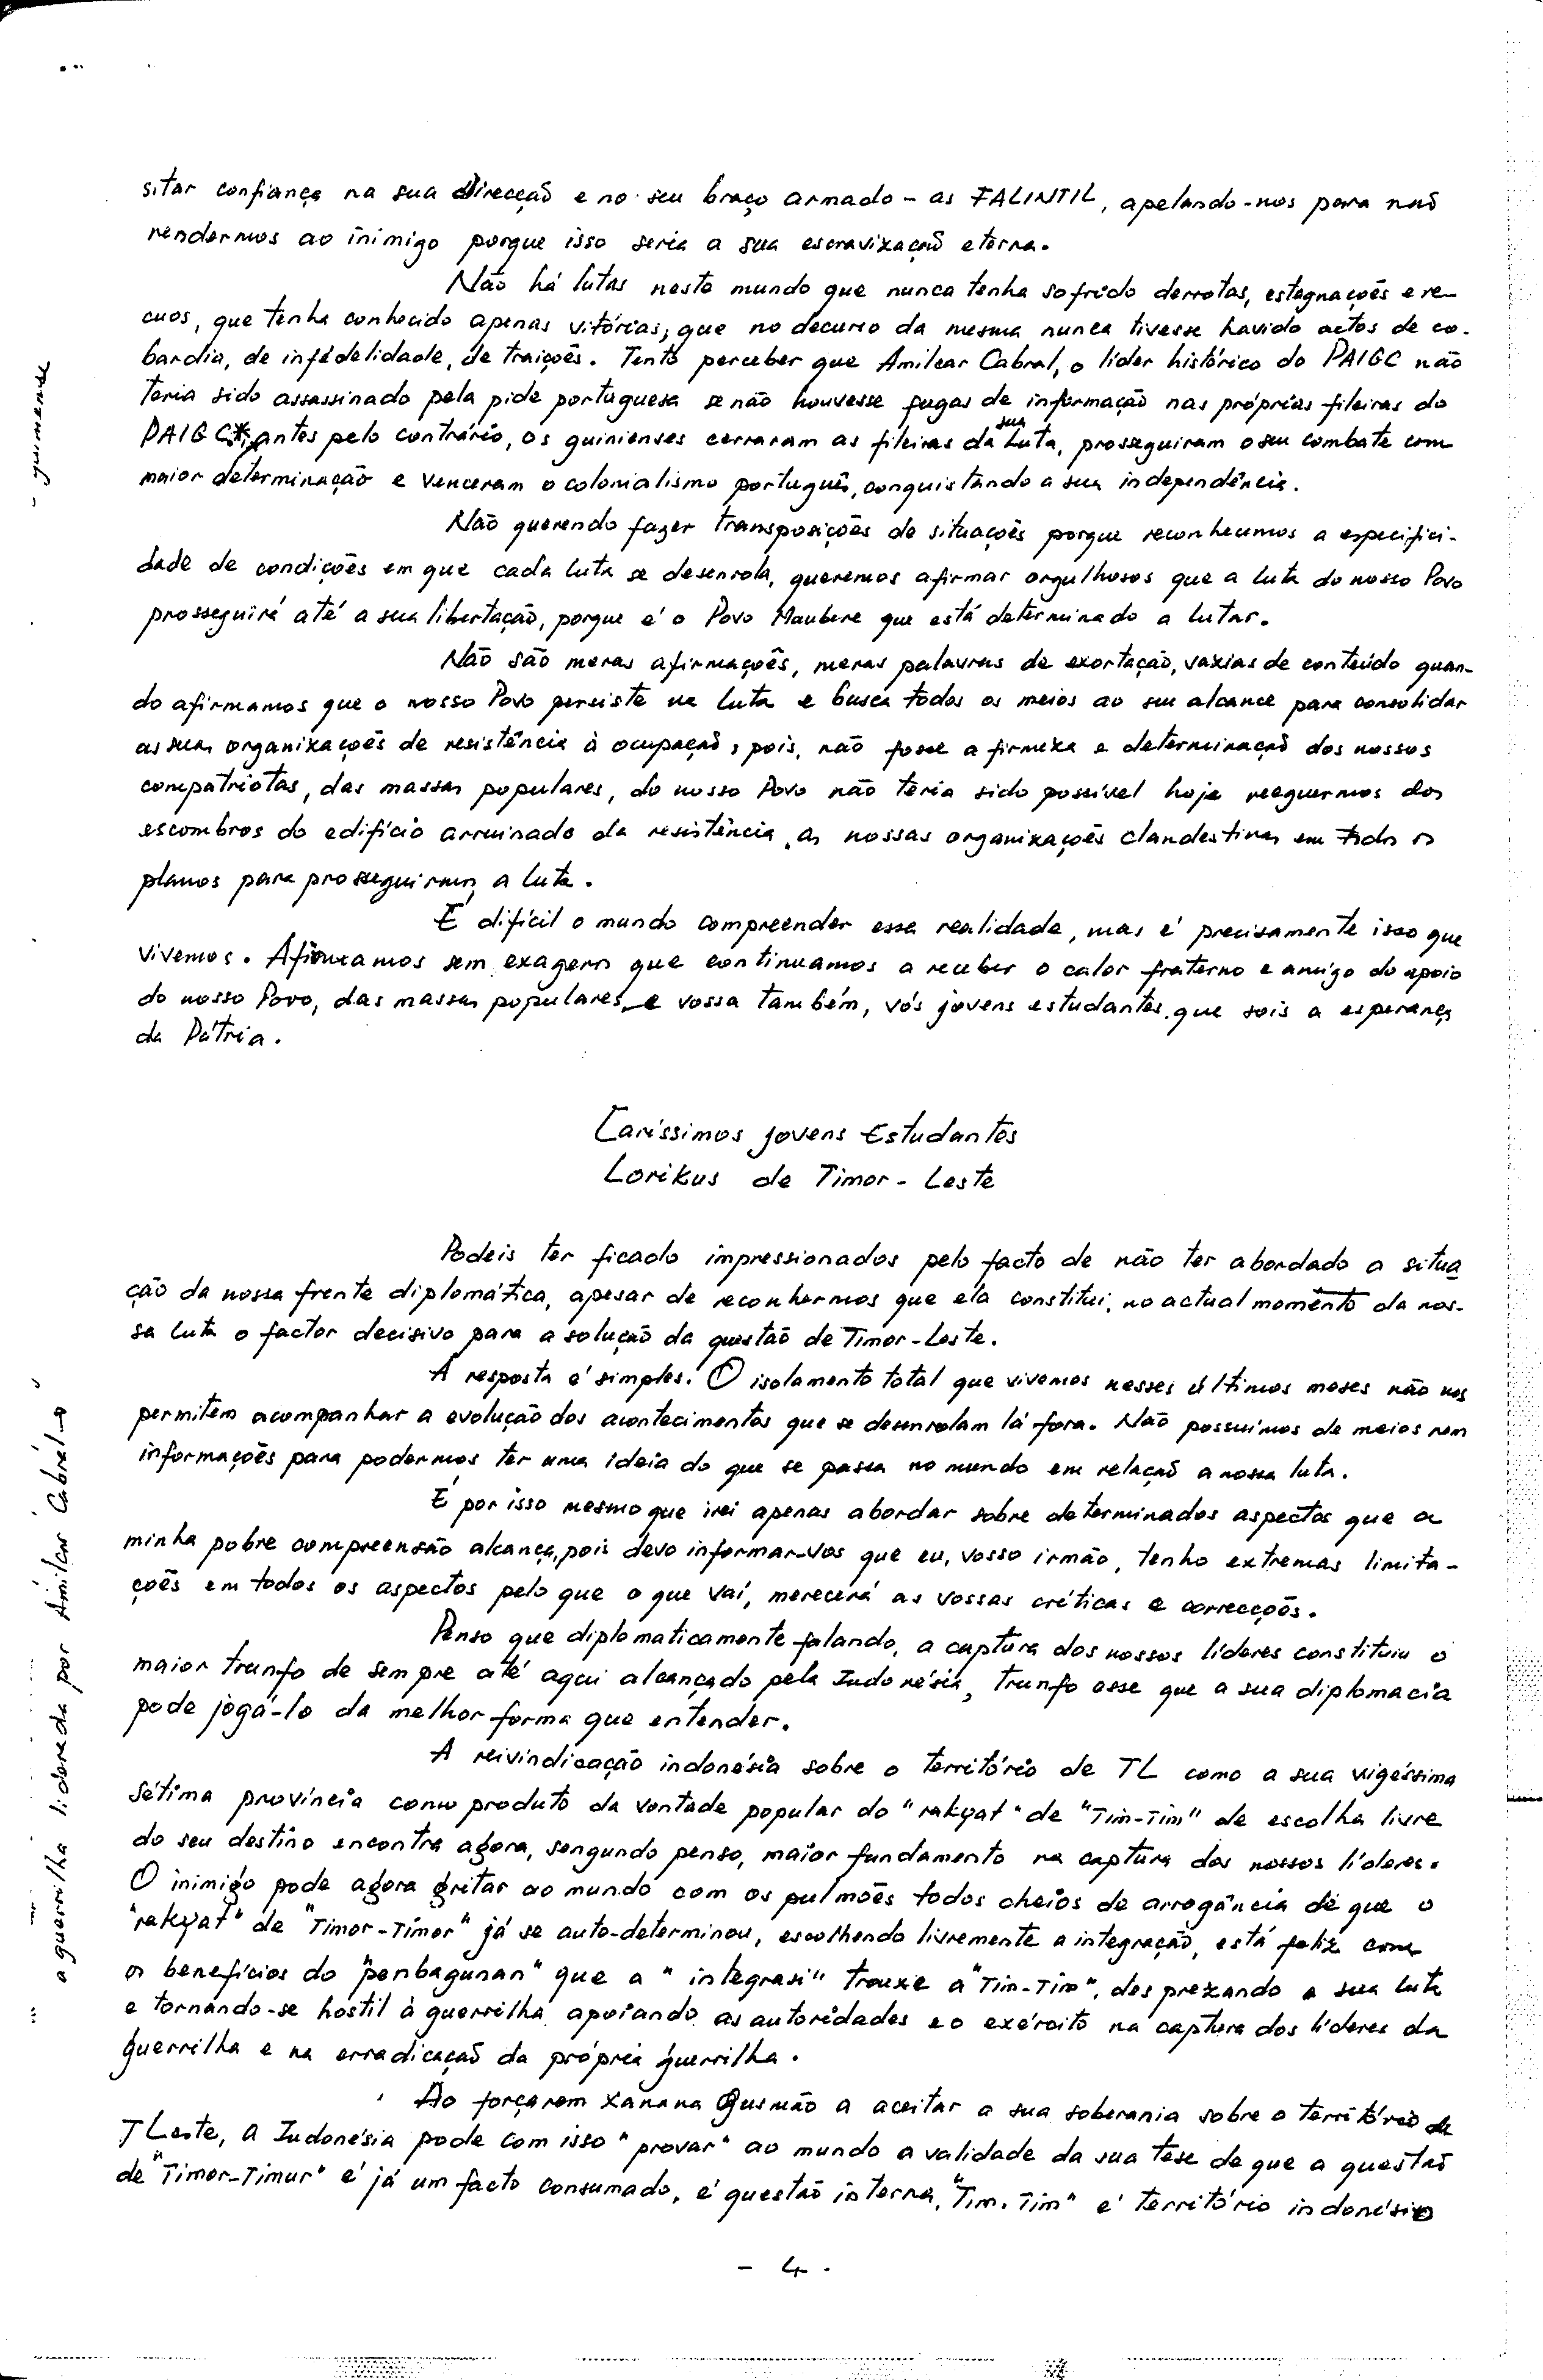 sitar confiança na sua Direcção e no seu braço armado - as FALINTIL, apelando-nos para não
rendermos ao inimigo porque isso seria a sua escravização eterna.
Não há lutas neste mundo que nunca tenha sofrido derrotas, estagnações e re-
cuos, que tenha conhecido apenas vitórias; que no decurso da mesma nunca tivesse havido actos de co-
bardia, de infidelidade, de traições. Tento perceber que Amilcar Cabral, o líder histórico do PAIGC não
teria sido assassinado pela pide portuguesa se não houvesse fugas de informação nas próprias fileiras do
PAIGC*; antes pelo contrário, os guinienses cerraram as fileiras da sua Luta, prosseguiram o seu combate com
maior determinação e venceram o colonialismo português, conquistando a sua independência.
Não querendo fazer transposições de situações porque reconhecemos a especifici-
dade de condições em que cada luta se desenrola, queremos afirmar orgulhosos que a luta do nosso Povo
prosseguirá até a sua libertação, porque é o Povo Maubere que está determinado a lutar.
Não são meras afirmações, meras palavras de exortação, vazias de conteúdo quan-
do afirmamos que o nosso Povo persiste na luta e busca todos os meios ao seu alcance para consolidar
as suas organizações de resistência à ocupação, pois, não fosse a firmeza e determinação dos nossos
compatriotas, das massas populares, do nosso Povo não teria sido possível hoje reeguermos dos
escombros do edifício arruinado da resistência, as nossas organizações clandestinas em todos os
planos para prosseguirmos a luta.
É difícil o mundo compreender essa realidade, mas é precisamente isso que
vivemos. Afirmamos sem exageros que continuamos a receber o calor fraterno e amigo do apoio
do nosso Povo, das massas populares, e vossa também, vós jovens estudantes, que sois a esperança
da Pátria.
Caríssimos jovens Estudantes
Lorikus de Timor-Leste
Podeis ter ficado impressionados pelo facto de não ter abordado a situa
ção da nossa frente diplomática, apesar de reconhermos que ela constitui, no actual momento da nos-
sa luta o factor decisivo para a solução da questão de Timor-Leste.
A resposta é simples. O isolamento total que vivemos nesses últimos meses não nos
permitem acompanhar a evolução dos acontecimentos que se desenrolam lá fora. Não possuimos de meios nem
informações para podermos ter uma ideia do que se passa no mundo em relação a nossa luta.
É por isso mesmo que irei apenas abordar sobre determinados aspectos que a
minha pobre compreensão alcança, pois devo informar-vos que eu, vosso irmão, tenho extremas limita-
ções em todos os aspectos pelo que o que vai, merecerá as vossas críticas e correcções.
Penso que diplomaticamente falando, a captura dos nossos líderes constituiu o
maior trunfo de sempre até aqui alcançado pela Indonésia, trunfo esse que a sua diplomacia
pode jogá-lo da melhor forma que entender.
A reivindicação indonésia sobre o território de TL como a sua vigéssima
sétima província como produto da vontade popular do "rakyat" de "Tim-Tim" de escolha livre
do seu destino encontra agora, sengundo penso, maior fundamento na captura dos nossos líderes.
O inimigo pode agora gritar ao mundo com os pulmões todos cheios de arrogância de que o
"rakyat" de "Timor-Timor" já se auto-determinou, escolhendo livremente a integração, está feliz com
os benefícios do "penbagunan" que a "integrasi" trouxe a "Tim-Tim", desprezando a sua luta
e tornando-se hostil à guerrilha, apoiando as autoridades e o exército na captura dos líderes da
guerrilha e na erradicação da própria guerrilha.
Ao forçarem Xanana Gusmão a aceitar a sua soberania sobre o território de
TLeste, a Indonésia pode com isso "provar" ao mundo a validade da sua tese de que a questão
de "Timor-Timur" é já um facto consumado, é questão interna, "Tim-Tim" é território indonésio
- 4 -
a guerrilha liderada por Amílcar Cabral
- guinense